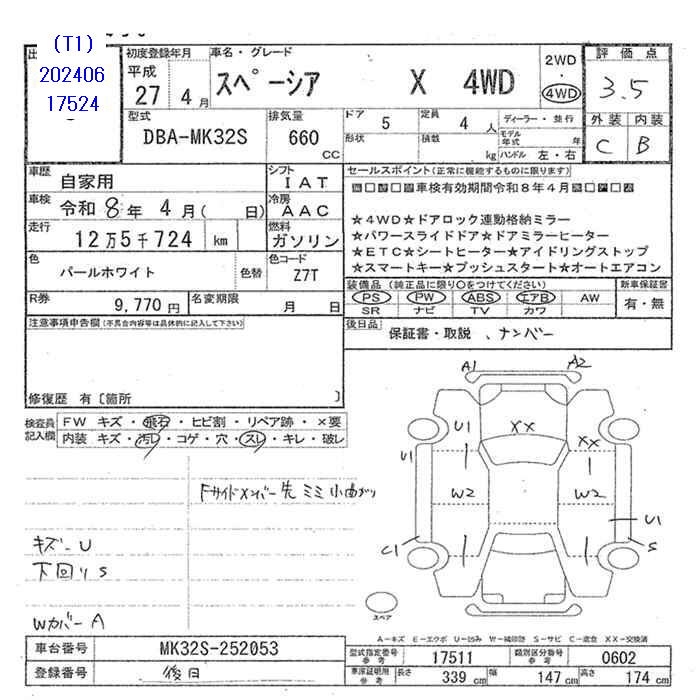 (T1)
202406
17524
初度登録年月
平成
27年 4月
車名・グレード
スペーシア X 4WD
2WD
・
4WD
評価点
3.5
型式
DBA-MK32S
排気量
660
CC
ドア 5
定員 4人
形状
積載 kg
ディーラー・並行
モデル年式 年
ハンドル 左・右
外装 内装
C B
車歴 自家用
シフト IAT
車検 令和8年 4月( 日)
冷房 AAC
走行 12万5千724 km
燃料 ガソリン
色 パールホワイト 色替
色コード Z7T
R券 9,770円
名変期限 月 日
セールスポイント(正常に機能するものに限ります)
車検有効期間令和8年4月
★4WD★ドアロック連動格納ミラー
★パワースライドドア★ドアミラーヒーター
★ETC★シートヒーター★アイドリングストップ
★スマートキー★プッシュスタート★オートエアコン
装備品(純正品に限り○をつけてください)
PS PW ABS エアB AW
SR ナビ TV カワ
新車保証書
有・無
後日品 保証書・取説、ナンバー
注意事項申告欄(不具合内容等は具体的に記入して下さい)
修復歴 有〔箇所 〕
検査員記入欄
FW キズ・飛石・ヒビ割・リペア跡・×要
内装 キズ・汚レ・コゲ・穴・スレ・キレ・破レ
Fサイドメンバー先 ミミ小曲がり
キズ-U
下回りS
Wカバー A
A1 A2
U1 XX XX
U1
W2 W2
U1
C1 S
スペア
A-キズ E-エクボ U-凹み W-補修跡 S-サビ C-腐食 XX-交換済
車台番号 MK32S-252053
登録番号 後日
型式指定番号 参考 17511
類別区分番号 参考 0602
車庫証明用 参考 長さ 339 cm 幅 147 cm 高さ 174 cm